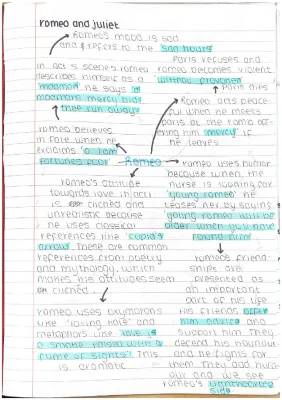 romeo and juliet
Romeo's mood is sad
and refers to the sad hours
in act 5 scene 3 romeo
describes himself as a
madman he says "a
madmans mercy bid
thee run away"
Paris refuses and
romeo becomes violent
Paris dies
Romeo acts peace-
ful when he meets
paris at the tomb off-
ering him mercy if
he leaves
romeo believes
in fate when he
exclaims "o I am
fortunes fool"
Romeo
romeo uses humor
because when the
nurse is looking for
young romeo he
teases her by saying
young romeo will be
older when you have
found him
romeo's attitude
towards love in act 1
is cliched and
unrealistic because
he uses classical
references like cupid's
arrow. These are common
references from poetry
and mythology, which
makes his attitudes seem
cliched.
romeo's friend-
ships are
presented as
an important
part of his life
His friends offer
him advice and
support him they
defend his honour
and he fights for
them. They add hum-
our and we see
romeo's lighthearted
side
romeo uses oxymorons
like "loving hate" and
metaphors like love is
a smoke raised with a
fume of sighs". This
is dramatic